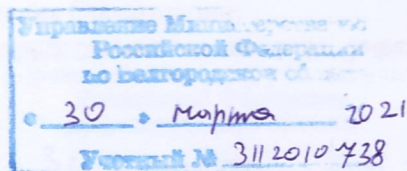 Управление Министерства
Российской Федерации
по Белгородской области
« 30 » марта 2021
Учетный № 3112010738